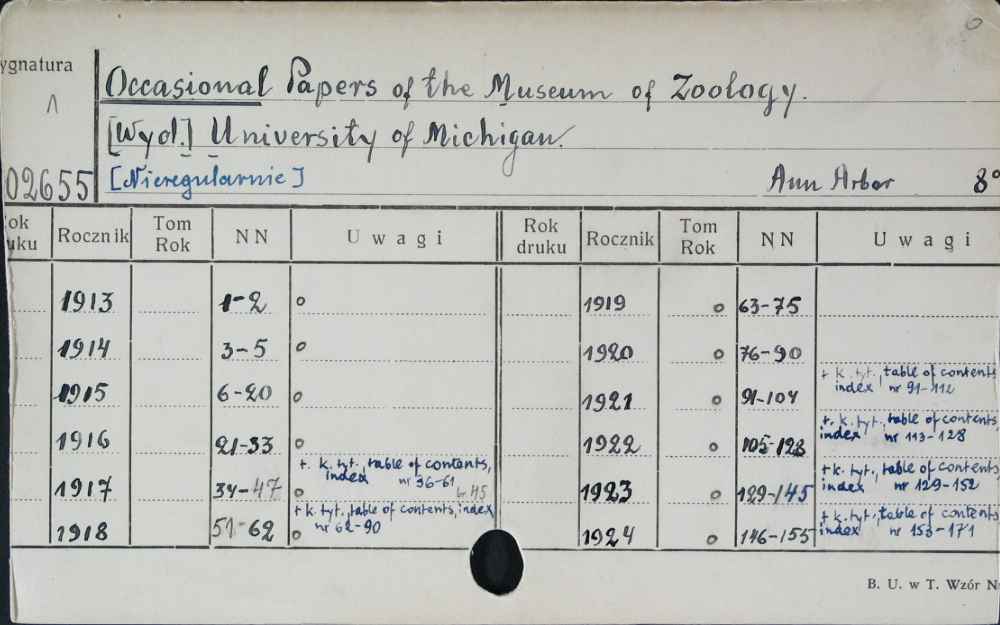 ygnatura
Occasional Papers of the Museum of Zoology.
[Wyd.] University of Michigan.
02655 [Nieregularnie] Ann Arbor 8°
Rocznik Tom Rok NN Uwagi Rok druku Rocznik Tom Rok NN Uwagi
1913 1-2 o 1919 o 63-75
1914 3-5 o 1920 o 76-90
+ k. tyt., table of contents
1915 6-20 o 1921 o 91-104 index nr 91-112
+ k. tyt., table of contents
1916 21-33 o 1922 o 105-128 index nr 113-128
+ k. tyt., table of contents, + k. tyt., table of contents
index nr 36-61
1917 34-47 o br 45 1923 o 129-145 index nr 129-152
+ k. tyt., table of contents, index + k. tyt., table of contents
nr 62-90
1918 51-62 o 1924 o 146-155 index nr 153-171
B. U. w T. Wzór N